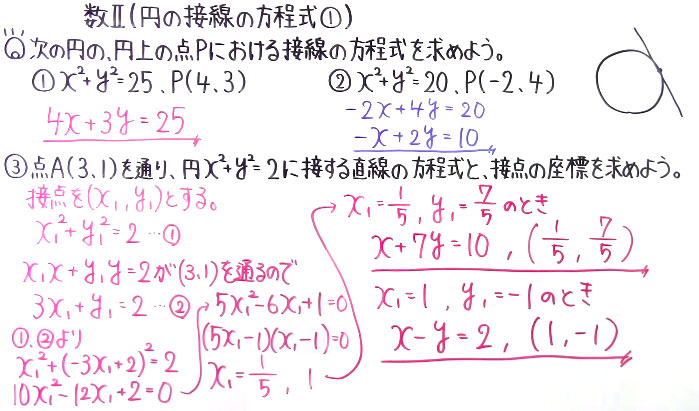 数Ⅱ(円の接線の方程式①)
Q 次の円の、円上の点Pにおける接線の方程式を求めよう。
① x²+y²=25、P(4,3)
② x²+y²=20、P(-2,4)
4x+3y=25
-2x+4y=20
-x+2y=10
③ 点A(3,1)を通り、円x²+y²=2に接する直線の方程式と、接点の座標を求めよう。
接点を(x₁,y₁)とする。
x₁²+y₁²=2…①
x₁x+y₁y=2が(3,1)を通るので
3x₁+y₁=2…②
①,②より
x₁²+(-3x₁+2)²=2
10x₁²-12x₁+2=0
5x₁²-6x₁+1=0
(5x₁-1)(x₁-1)=0
x₁=1/5, 1
x₁=1/5, y₁=7/5のとき
x+7y=10, (1/5, 7/5)
x₁=1, y₁=-1のとき
x-y=2, (1,-1)